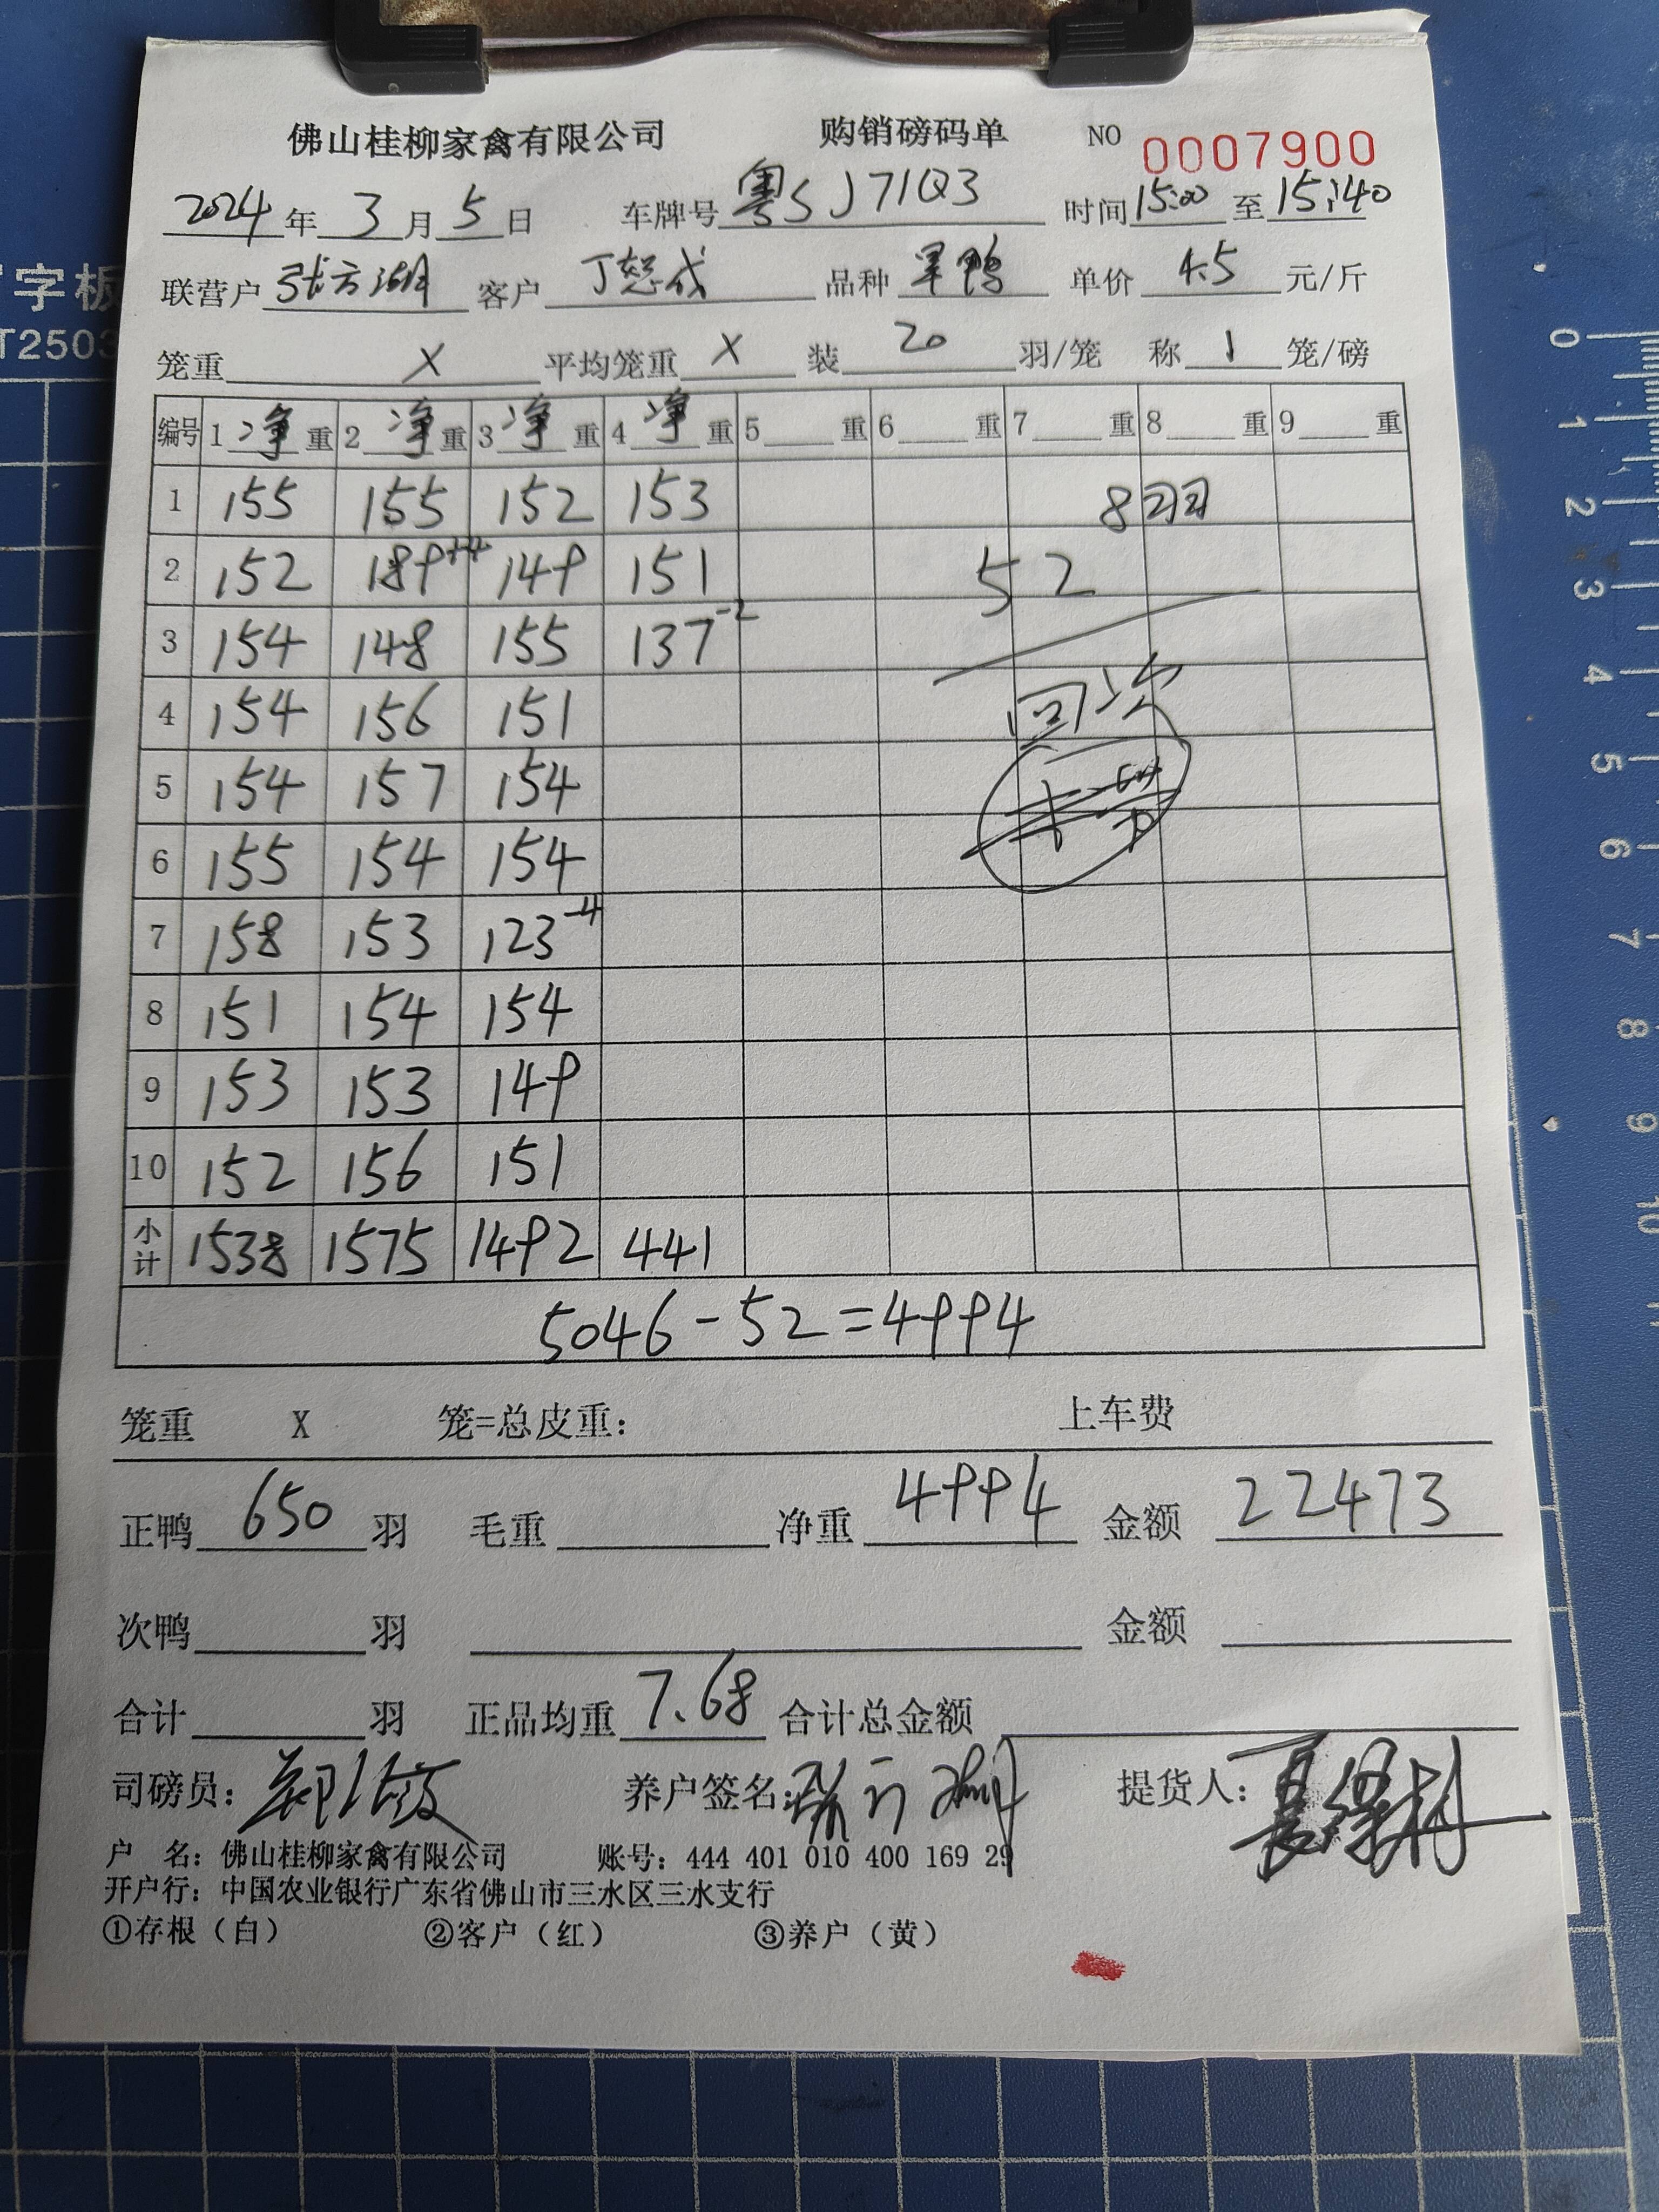 佛山桂柳家禽有限公司 购销磅码单 NO 0007900
2024年3月5日 车牌号 粤SJ71Q3 时间 15:00 至 15:40
联营户 张云湖 客户 丁恕成 品种 旱鸭 单价 4.5 元/斤
笼重 X 平均笼重 X 装 20 羽/笼 称 1 笼/磅
编号 1净重 2净重 3净重 4净重 5 重 6 重 7 重 8 重 9 重
1 155 155 152 153 8羽
2 152 189+4 149 151 52
3 154 148 155 137-2
4 154 156 151 回次
5 154 157 154
6 155 154 154
7 158 153 123-4
8 151 154 154
9 153 153 149
10 152 156 151
小计 1538 1575 1492 441
5046-52=4994
笼重 X 笼=总皮重： 上车费
正鸭 650 羽 毛重 净重 4994 金额 22473
次鸭 羽 金额
合计 羽 正品均重 7.68 合计总金额
司磅员： 养户签名： 张云湖 提货人：
户 名：佛山桂柳家禽有限公司 账号：444 401 010 400 169 29
开户行：中国农业银行广东省佛山市三水区三水支行
①存根（白） ②客户（红） ③养户（黄）
字板
T2503
0
1
2
3
4
5
6
7
8
9
10